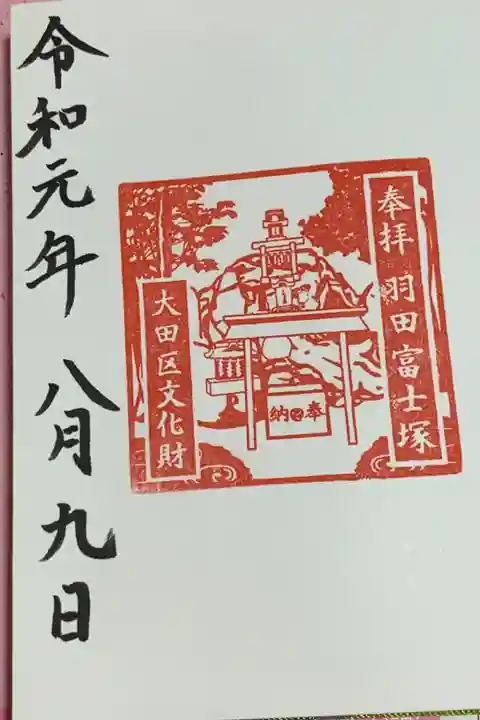 奉拝 羽田富士塚
奉納
大田区文化財
令和元年 八月九日